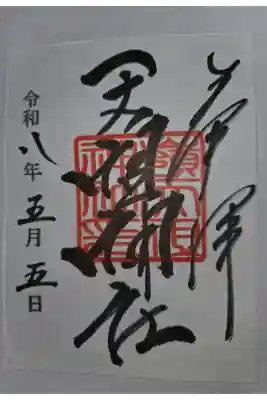 奉拝
天祖神社
令和八年五月五日